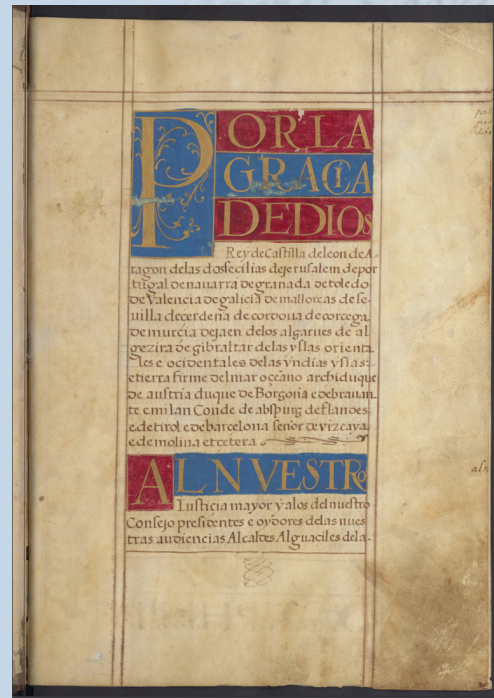 POR LA
GRACIA
DE DIOS
Rey de Castilla de leon de A-
ragon de las dos secilias de jerusalem de por
tugal de navarra de granada de toledo
de valencia de galicia de mallorcas de se-
villa de cerdeña de cordova de corcega
de murcia de jaen de los algarves de al
gezira de gibraltar de las yslas orienta
les e ocidentales de las yndias yslas:
e tierra firme del mar oçeano archiduque
de austria duque de Borgoña e de bravan
te e milan Conde de abspurg de flandes
e de tirol e de barcelona señor de vizcaya
e de molina etcetera
AL NVESTRO
Iusticia mayor y a los del nuestro
Consejo presidentes e oydores de las nues
tras audiencias Alcaldes Alguaciles de la-